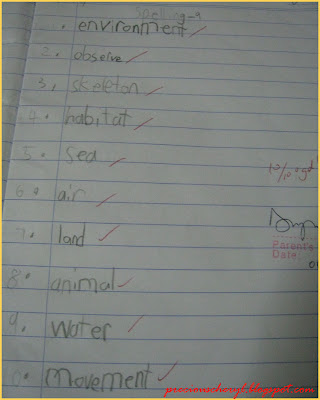 Spelling-9
. environment
2. observe
3, skeleton
4. habitat
5. sea
6. air
7. land
8. animal
9. water
0. movement
10/10
Parent's
Date: